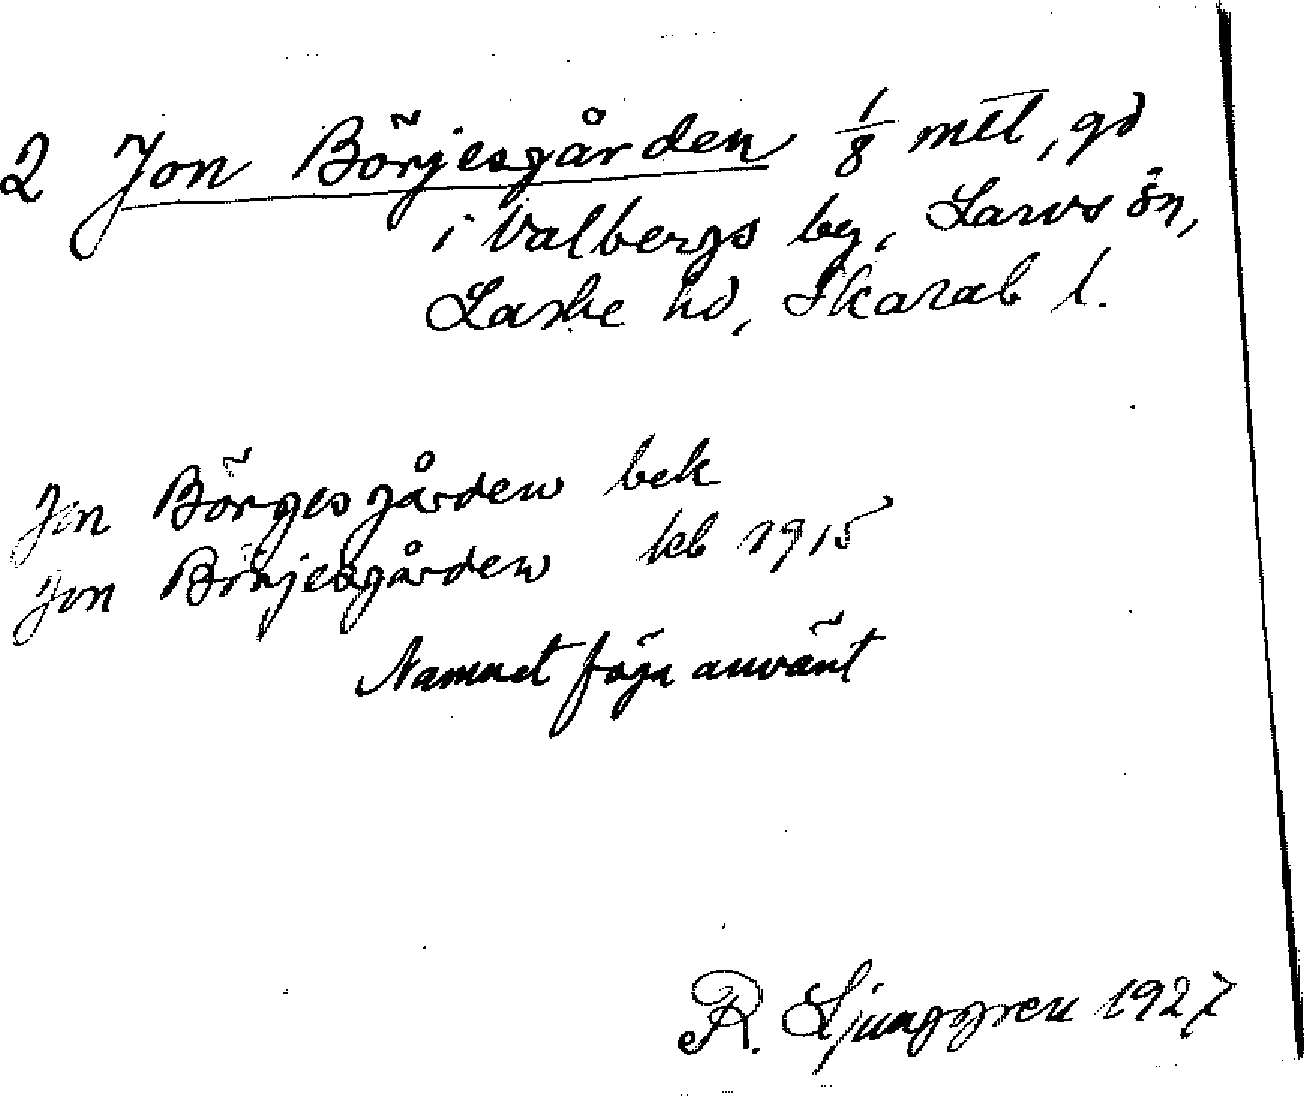 2 Jon Börjesgården 1/8 mtl, gd
i Valbergs by, Larvs sn,
Laske hd, Skarab l.
Jon Börgesgården bek
Jon Börjesgården kb 1915
Namnet föga använt
R. Ljunggren 1927